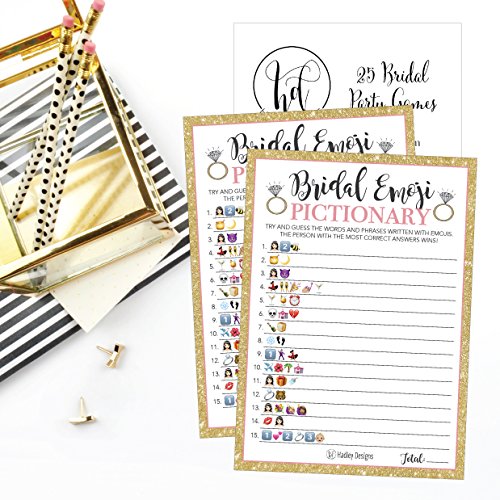 hd
25 Bridal
Party Games
Bridal Emoji
PICTIONARY
TRY AND GUESS THE WORDS AND PHRASES WRITTEN WITH EMOJIS.
THE PERSON WITH THE MOST CORRECT ANSWERS WINS!
1.
2.
3.
4.
5.
6.
7.
8.
9.
10.
11.
12.
13.
14.
15.
hd Hadley Designs
Total: